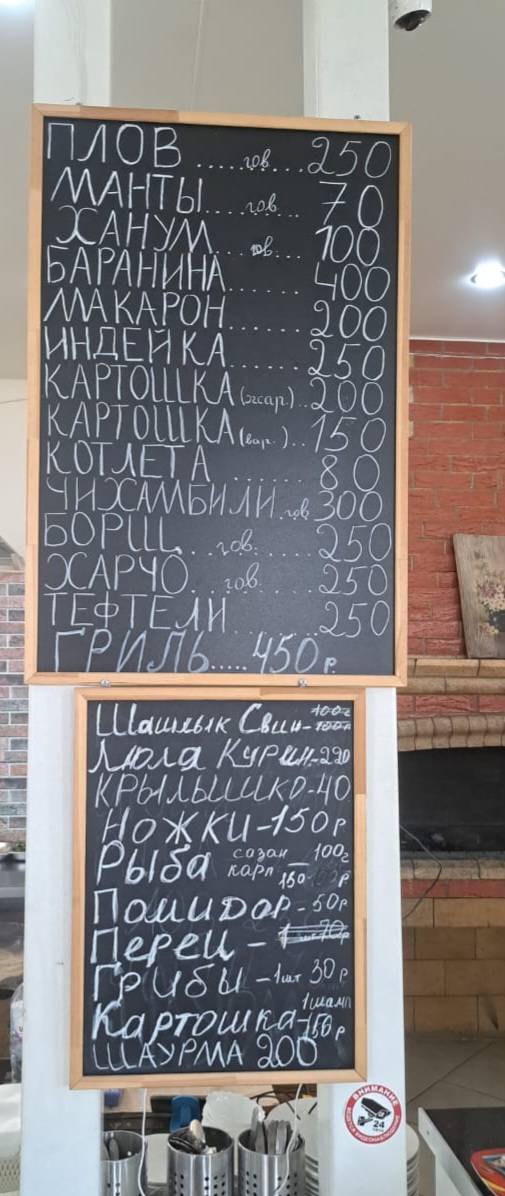 ПЛОВ ..... гов.... 250
МАНТЫ.... гов... 70
ХАНУМ.... гов.... 100
БАРАНИНА...... 400
МАКАРОН...... 200
ИНДЕЙКА...... 250
КАРТОШКА (жар.)..200
КАРТОШКА (вар.)..150
КОТЛЕТА ...... 80
ЧИХАМБИЛИ. гов 300
БОРЩ... гов...... 250
ХАРЧО.. гов...... 250
ТЕФТЕЛИ....... 250
ГРИЛЬ..... 450 р.
Шашлык Свин- 100г
Люла КУРИН-290
КРЫЛЫШКО-40
НОЖКИ-150р
Рыба сазан карп — 100г 150 р
Помидор - 50р
Перец - 1шт 70р
ГРИБЫ - 1шт 30р
Картошка- 1шамп 150р
ШАУРМА 200
ВНИМАНИЕ
24
ВЕДЕТСЯ ВИДЕОНАБЛЮДЕНИЕ